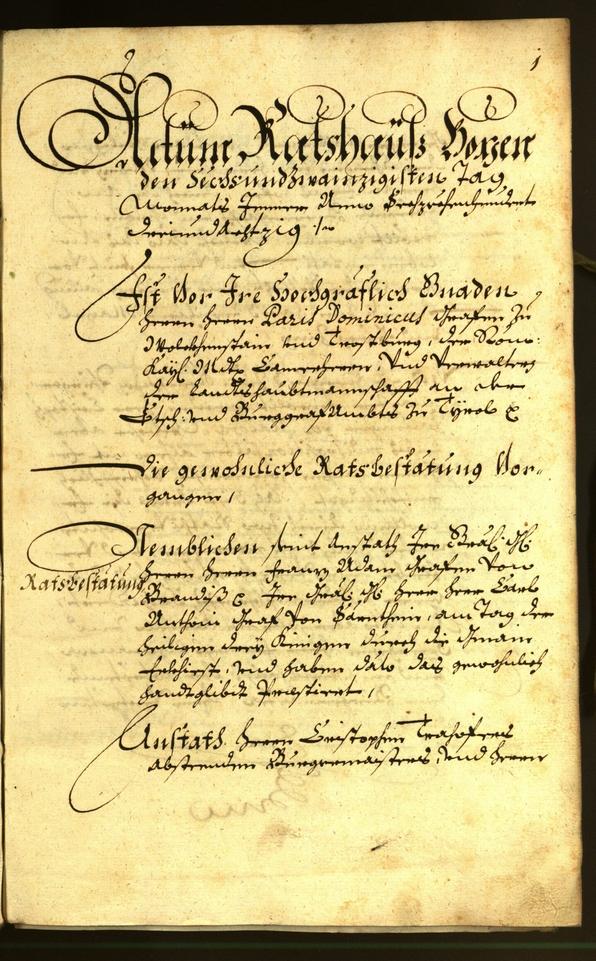 1
Actum Ratshauß Bozen
den Sechsundzwainzigisten Tag
Monnats Jenner Anno Sechzechenhundert
dreiundachtzig
Ist Vor Ire Hochgräflich Gnaden
Herrn Herrn Paris Dominicus Grafen zu
Wolckhenstain und Trostburg, der Röm:
Kay: Mtt: Camerherrn, Und Verwaltern
der Landtshaubtmannschafft an der
Etsch: und Burggrafambts zu Tyrol
Die gewohnliche Ratsbestätung Vor-
gangen,
Nemblichen seint anstath Ire Gräf:
Ratsbestätung
Herrn Herrn Franz Adam Grafen von
Brandiß Ire Gräf: Herr Herr Carl
Anthoni Graf von am Tag der
Heiligen drey Königen durch die
und haben dato das gewohnlich
handtglibdt Praestiert,
Anstath Herrn Cristophen
abstenden Burgermaisters, und Herrn